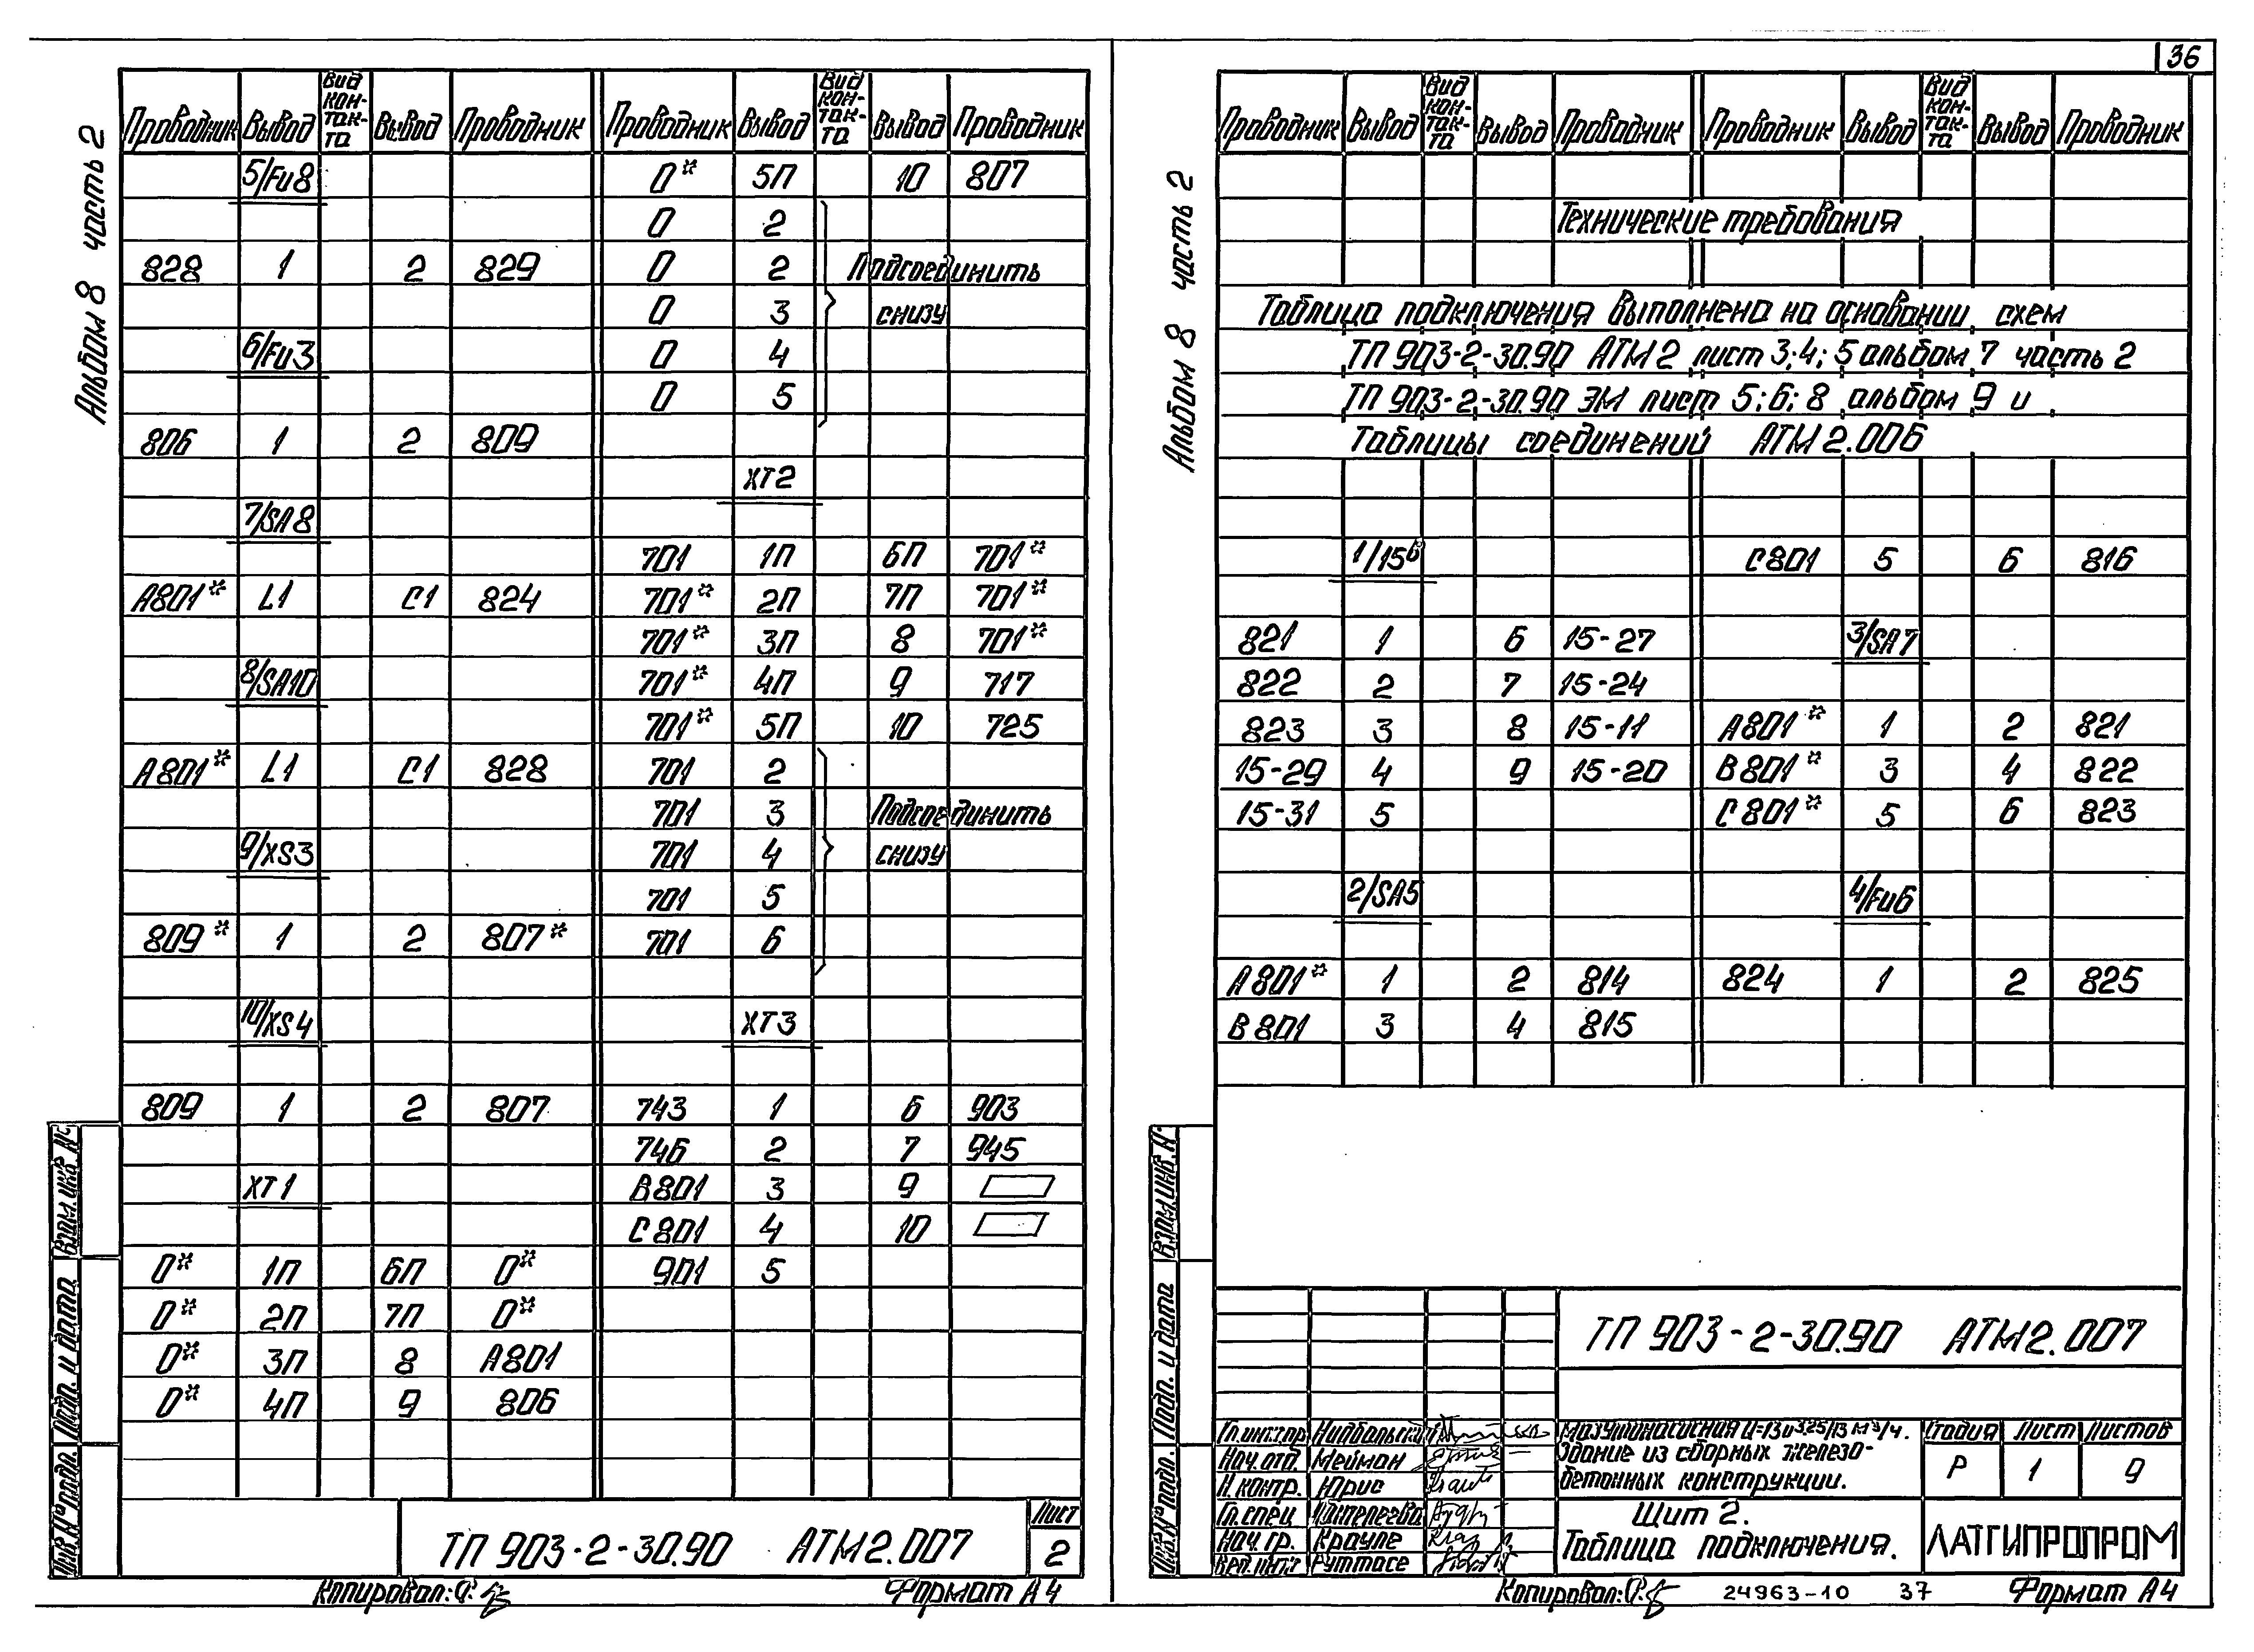 36
Альбом 8 часть 2
Проводник Вывод Вид кон-так-та Вывод Проводник Проводник Вывод Вид кон-так-та Вывод Проводник
5/Fu8 0* 5П 10 807
0 2
828 1 2 829 0 2 Подсоединить
0 3 снизу
6/Fu3 0 4
0 5
806 1 2 809
XT2
7/SA8
701 1П 6П 701*
А801* L1 C1 824 701* 2П 7П 701*
701* 3П 8 701*
8/SA10 701* 4П 9 717
701* 5П 10 725
А801* L1 C1 828 701 2
701 3 Подсоединить
9/XS3 701 4 снизу
701 5
809* 1 2 807* 701 6
10/XS4 XT3
809 1 2 807 743 1 6 903
746 2 7 945
XT1 В801 3 9
С801 4 10
0* 1П 6П 0* 901 5
0* 2П 7П 0*
0* 3П 8 А801
0* 4П 9 806
Взам. инв. №
Подп. и дата
Инв. № подл.
ТП 903-2-30.90 АТМ2.007
Лист
2
Копировал:
Формат А4
Альбом 8 часть 2
Проводник Вывод Вид кон-так-та Вывод Проводник Проводник Вывод Вид кон-так-та Вывод Проводник
Технические требования
Таблица подключения выполнена на основании схем
ТП 903-2-30.90 АТМ2 лист 3;4;5 альбом 7 часть 2
ТП 903-2-30.90 ЭМ лист 5;6;8 альбом 9 и
Таблицы соединений АТМ2.006
1/15б С801 5 6 816
821 1 6 15-27 3/SA7
822 2 7 15-24
823 3 8 15-11 А801* 1 2 821
15-29 4 9 15-20 В801* 3 4 822
15-31 5 С801* 5 6 823
2/SA5 4/Fu6
А801* 1 2 814 824 1 2 825
В801 3 4 815
Взам. инв. №
Подп. и дата
Инв. № подл.
ТП 903-2-30.90 АТМ2.007
Гл.инж.пр. Нидбальский
Нач.отд. Мейман
Н.контр. Юрис
Гл.спец
Нач. гр. Крауле
Вед.инж. Руттасе
Мазутонасосная Q=13 и 3,25/13 м³/ч.
Здание из сборных железо-
бетонных конструкции.
Стадия Лист Листов
Р 1 9
Щит 2.
Таблица подключения.
ЛАТГИПРОПРОМ
Копировал:
24963-10 37
Формат А4